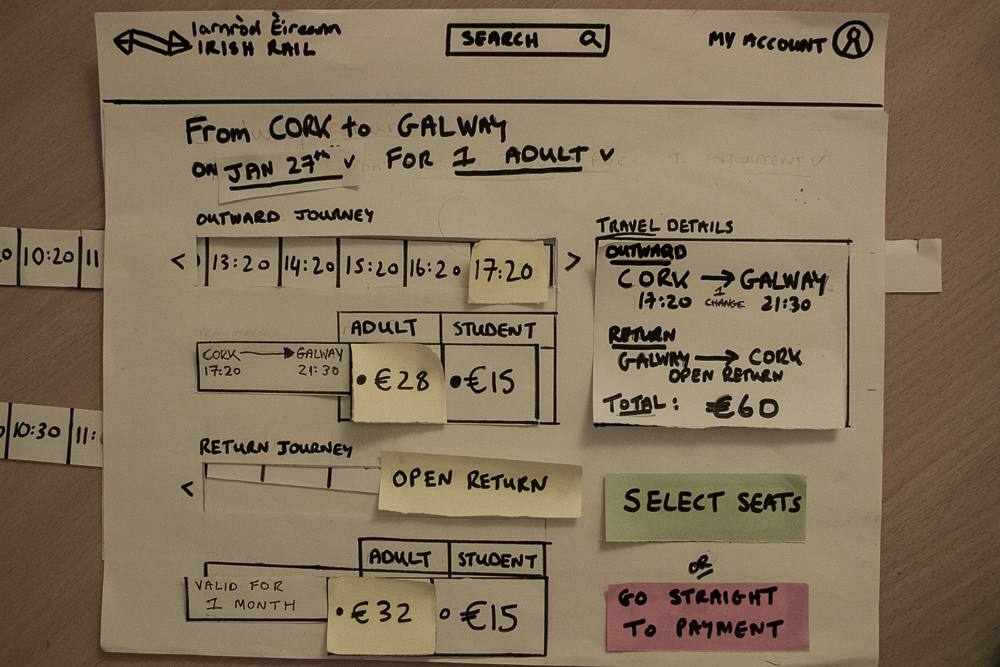 Iarnròd Èireann
IRISH RAIL
SEARCH
MY ACCOUNT
From CORK to GALWAY
ON JAN 27th v FOR 1 ADULT v
OUTWARD JOURNEY
< 13:20 14:20 15:20 16:20 17:20 >
10:20 11
ADULT STUDENT
CORK → GALWAY
17:20 21:30
• €28 • €15
10:30 11:
RETURN JOURNEY
< OPEN RETURN
ADULT STUDENT
VALID FOR
1 MONTH
• €32 o €15
TRAVEL DETAILS
OUTWARD
CORK → GALWAY
17:20 1 CHANGE 21:30
RETURN
GALWAY → CORK
OPEN RETURN
TOTAL: €60
SELECT SEATS
OR
GO STRAIGHT
TO PAYMENT